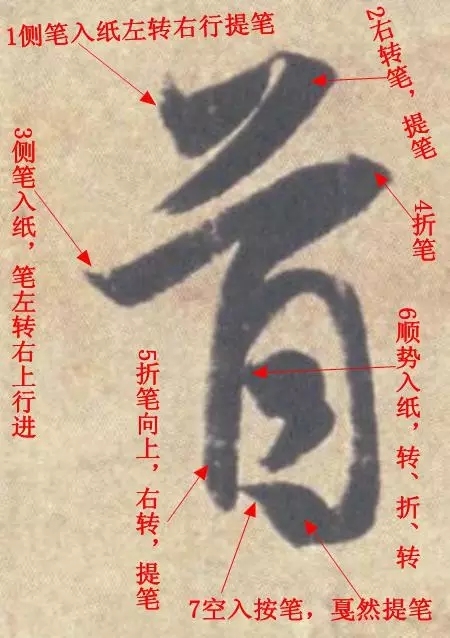 1侧笔入纸左转右行提笔
2右转笔，提笔
3侧笔入纸，笔左转右上行进
4折笔
5折笔向上，右转，提笔
6顺势入纸，转、折、转
7空入按笔，戛然提笔
首